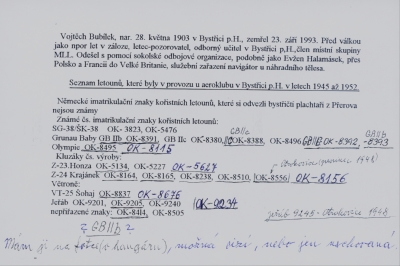 Vojtěch Bubílek, nar. 28. května 1903 v Bystřici p.H., zemřel 23. září 1993. Před válkou
jako npor let v záloze, letec-pozorovatel, odborný učitel v Bystřici p,H.,člen místní skupiny
MLL. Odešel s pomocí sokolské odbojové organizace, podobně jako Evžen Halamásek, přes
Polsko a Francii do Velké Británie, služební zařazení navigátor u náhradního tělesa.
Seznam letounů, které byly v provozu a aeroklubu v Bystřici p.H. v letech 1945 až 1952.
Německé imatrikulační znaky kořistních letounů, které si odvezli bystřičtí plachtaři z Přerova
nejsou známy
Známé čs. imatrikulační znaky kořistních letounů:
SG-38/ŠK-38 OK- 3823, OK-5476
GBIIc
Grunau Baby GB IIb OK-8391, GB IIc OK-8380, OK-8388, OK-8496, GBIIB OK-8392, GBIIb -8393
Olympic OK-8495 OK-8115
Kluzáky čs. výroby:
Z-23.Honza OK-5134, OK-5227 OK-5627
Z-24 Krajánek OK-8164, OK-8165, OK-8238, OK-8510, OK-8556 OK-8156
Větroně:
VT-25 Šohaj OK-8837 OK-8676
Jeřáb OK-9201, OK-9205, OK-9240 OK-9234
nepřiřazené znaky: OK-8414, OK-8505
jeřáb 9245 - Otrokovice 1948
2 GBIIb 2
Mám ji na fotce (v hangáru), možná cizí, nebo jen uschovaná.